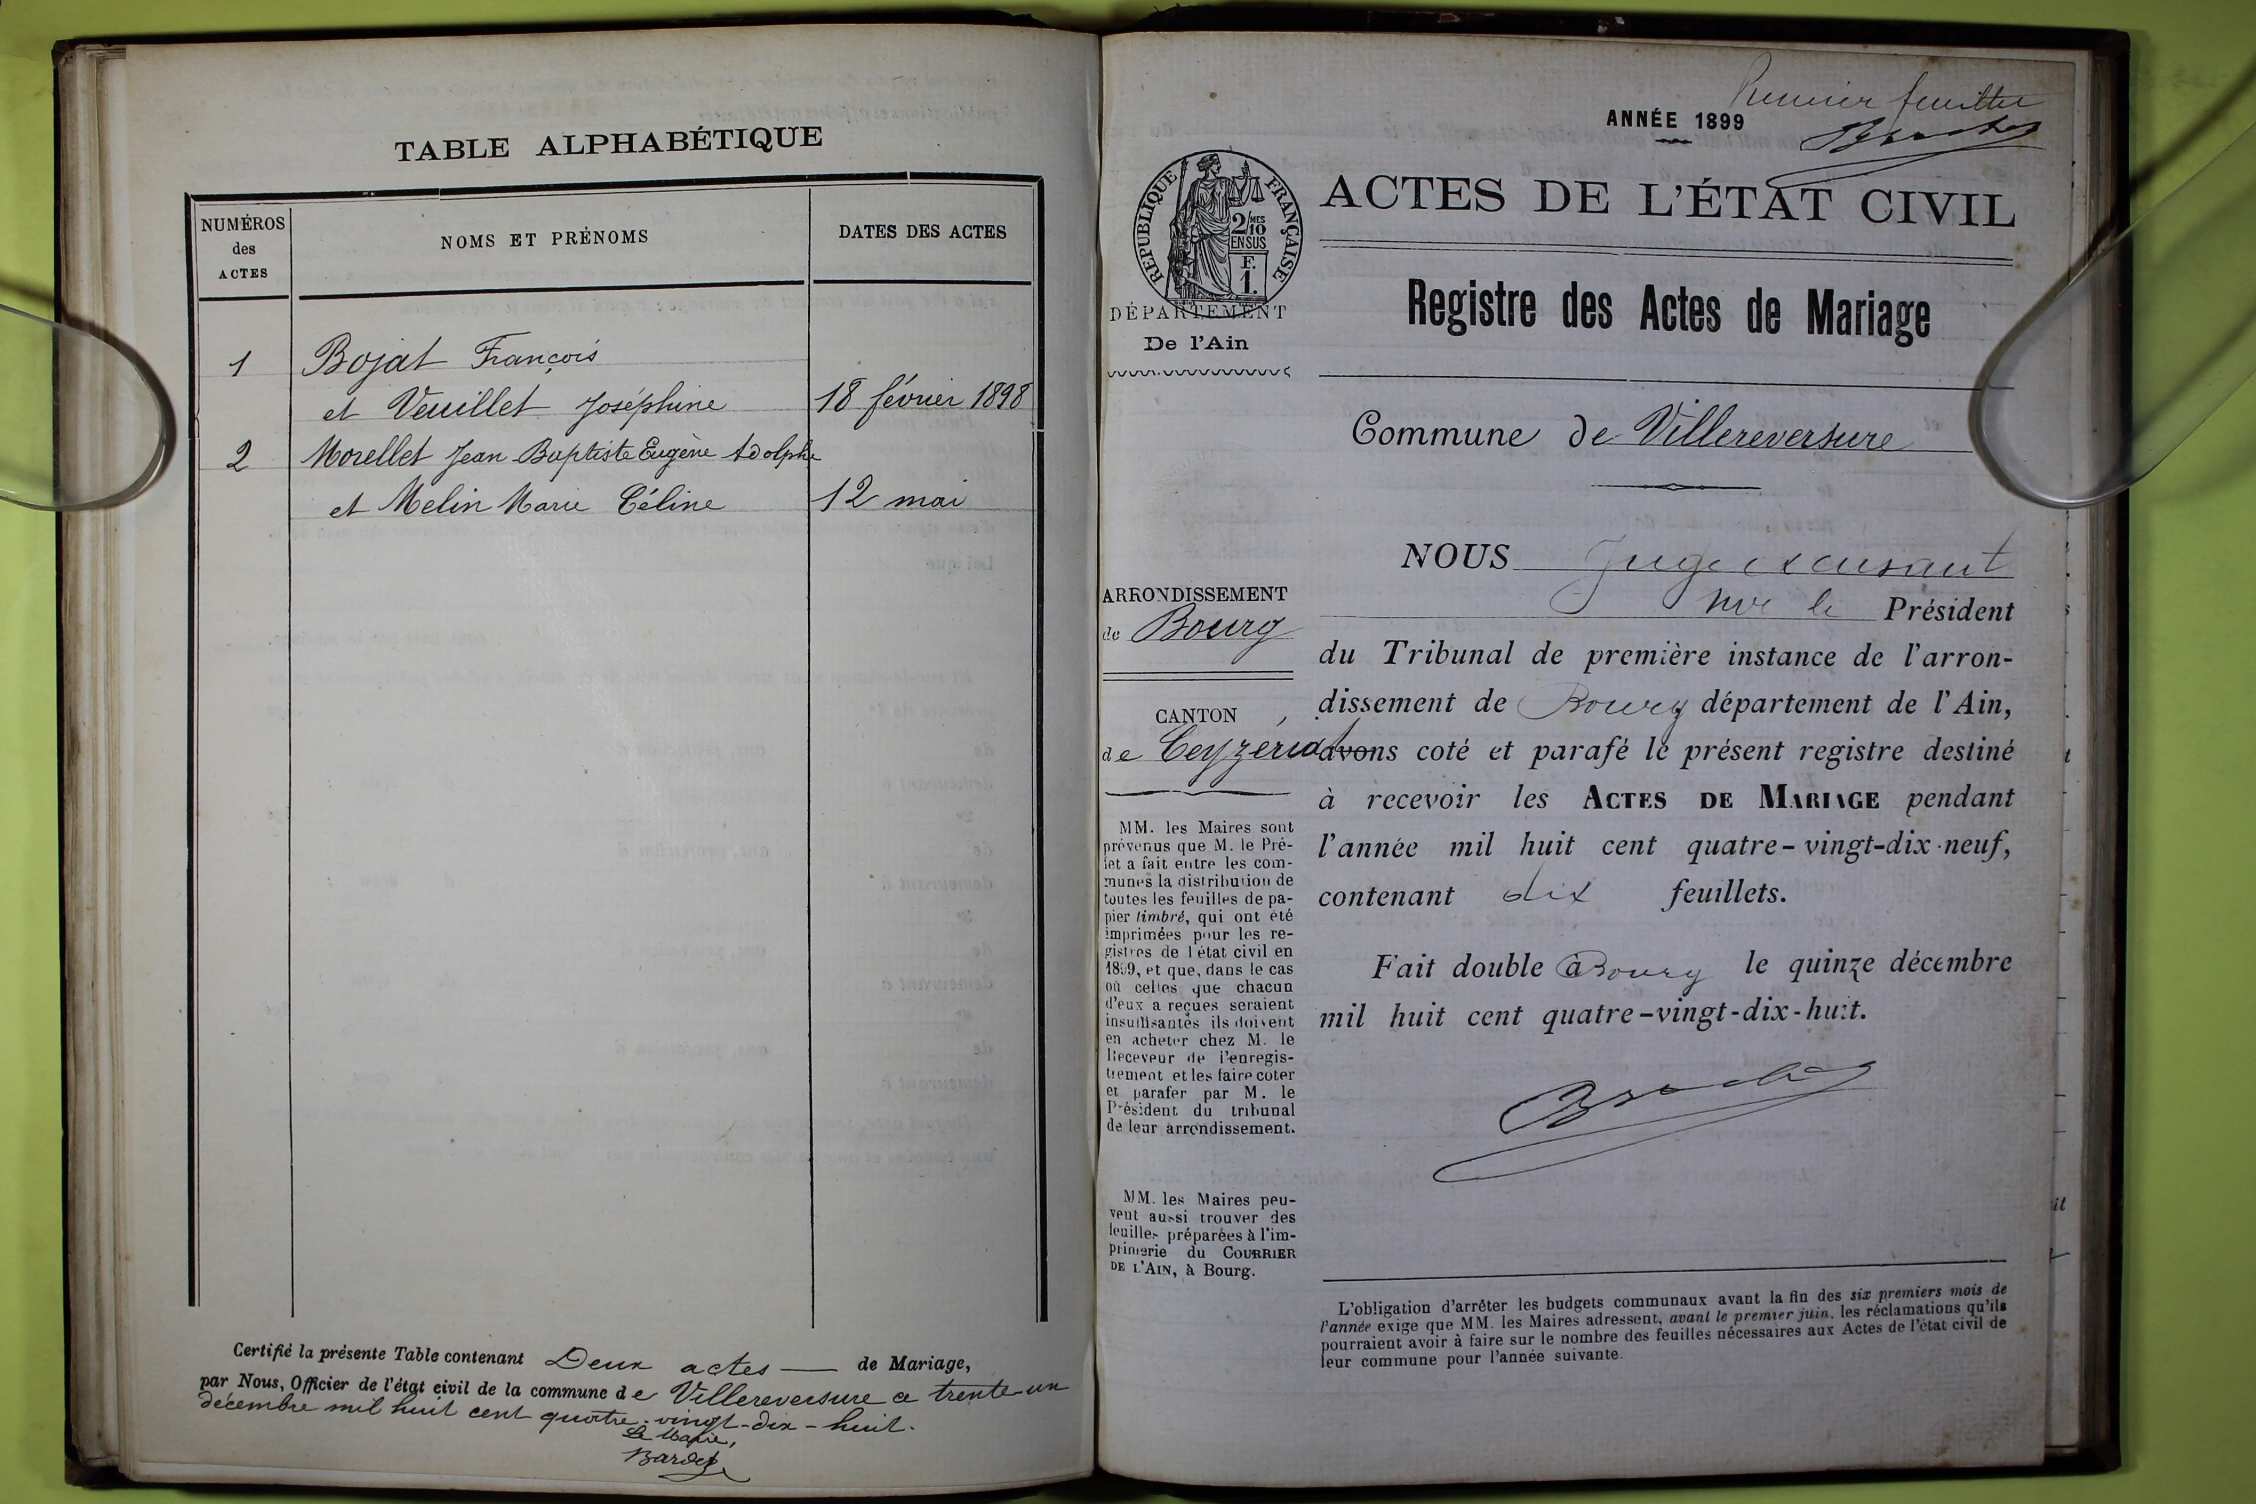 TABLE ALPHABÉTIQUE
NUMÉROS
des
ACTES
NOMS ET PRÉNOMS
DATES DES ACTES
1 Bojat François
et Veuillet Joséphine 18 février 1898
2 Morellet Jean Baptiste Eugène Adolphe
et Melin Marie Céline 12 mai
Certifié la présente Table contenant Deux actes — de Mariage,
par Nous, Officier de l'état civil de la commune de Villereversure ce trente-un
décembre mil huit cent quatre-vingt-dix-huit.
Le Maire,
Premier feuillet
ANNÉE 1899
RÉPUBLIQUE FRANÇAISE
2/MES
10
EN SUS
F.
1.
DÉPARTEMENT
De l'Ain
ACTES DE L'ÉTAT CIVIL
Registre des Actes de Mariage
Commune de Villereversure
ARRONDISSEMENT
de Bourg
CANTON
de Ceyzériat
MM. les Maires sont
prévenus que M. le Pré-
fet a fait entre les com-
munes la distribution de
toutes les feuilles de pa-
pier timbré, qui ont été
imprimées pour les re-
gistres de l'état civil en
1899, et que, dans le cas
où celles que chacun
d'eux a reçues seraient
insuffisantes ils doivent
en acheter chez M. le
Receveur de l'enregis-
trement et les faire coter
et parafer par M. le
Président du tribunal
de leur arrondissement.
MM. les Maires peu-
vent aussi trouver des
feuilles préparées à l'im-
primerie du COURRIER
DE L'AIN, à Bourg.
NOUS Juge excusant
Mr le Président
du Tribunal de première instance de l'arron-
dissement de Bourg département de l'Ain,
avons coté et parafé le présent registre destiné
à recevoir les ACTES DE MARIAGE pendant
l'année mil huit cent quatre-vingt-dix-neuf,
contenant dix feuillets.
Fait double à Bourg le quinze décembre
mil huit cent quatre-vingt-dix-huit.
L'obligation d'arrêter les budgets communaux avant la fin des six premiers mois de
l'année exige que MM. les Maires adressent, avant le premier juin, les réclamations qu'ils
pourraient avoir à faire sur le nombre des feuilles nécessaires aux Actes de l'état civil de
leur commune pour l'année suivante.